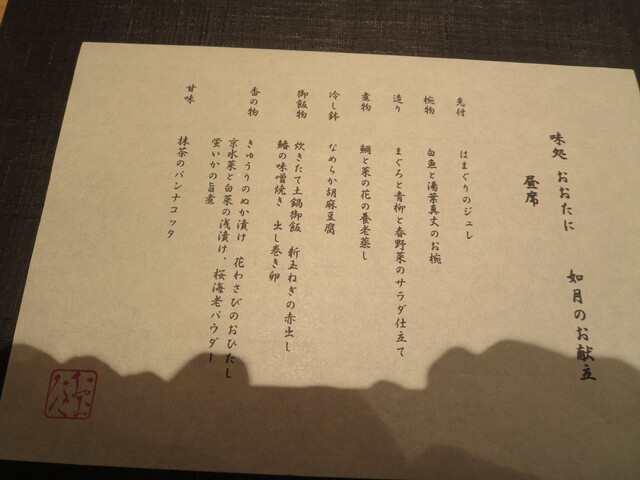 味処 おおたに 如月のお献立
昼席
先付 はまぐりのジュレ
椀物 白魚と湯葉真丈のお椀
造り まぐろと青柳と春野菜のサラダ仕立て
煮物 鯛と菜の花の養老蒸し
冷し鉢 なめらか胡麻豆腐
御飯物 炊きたて土鍋御飯 新玉ねぎの赤出し
鰆の味噌焼き 出し巻き卵
香の物 きゅうりのぬか漬け 花わさびのおひたし
京水菜と白菜の浅漬け、桜海老パウダー
蛍いかの旨煮
甘味 抹茶のパンナコッタ